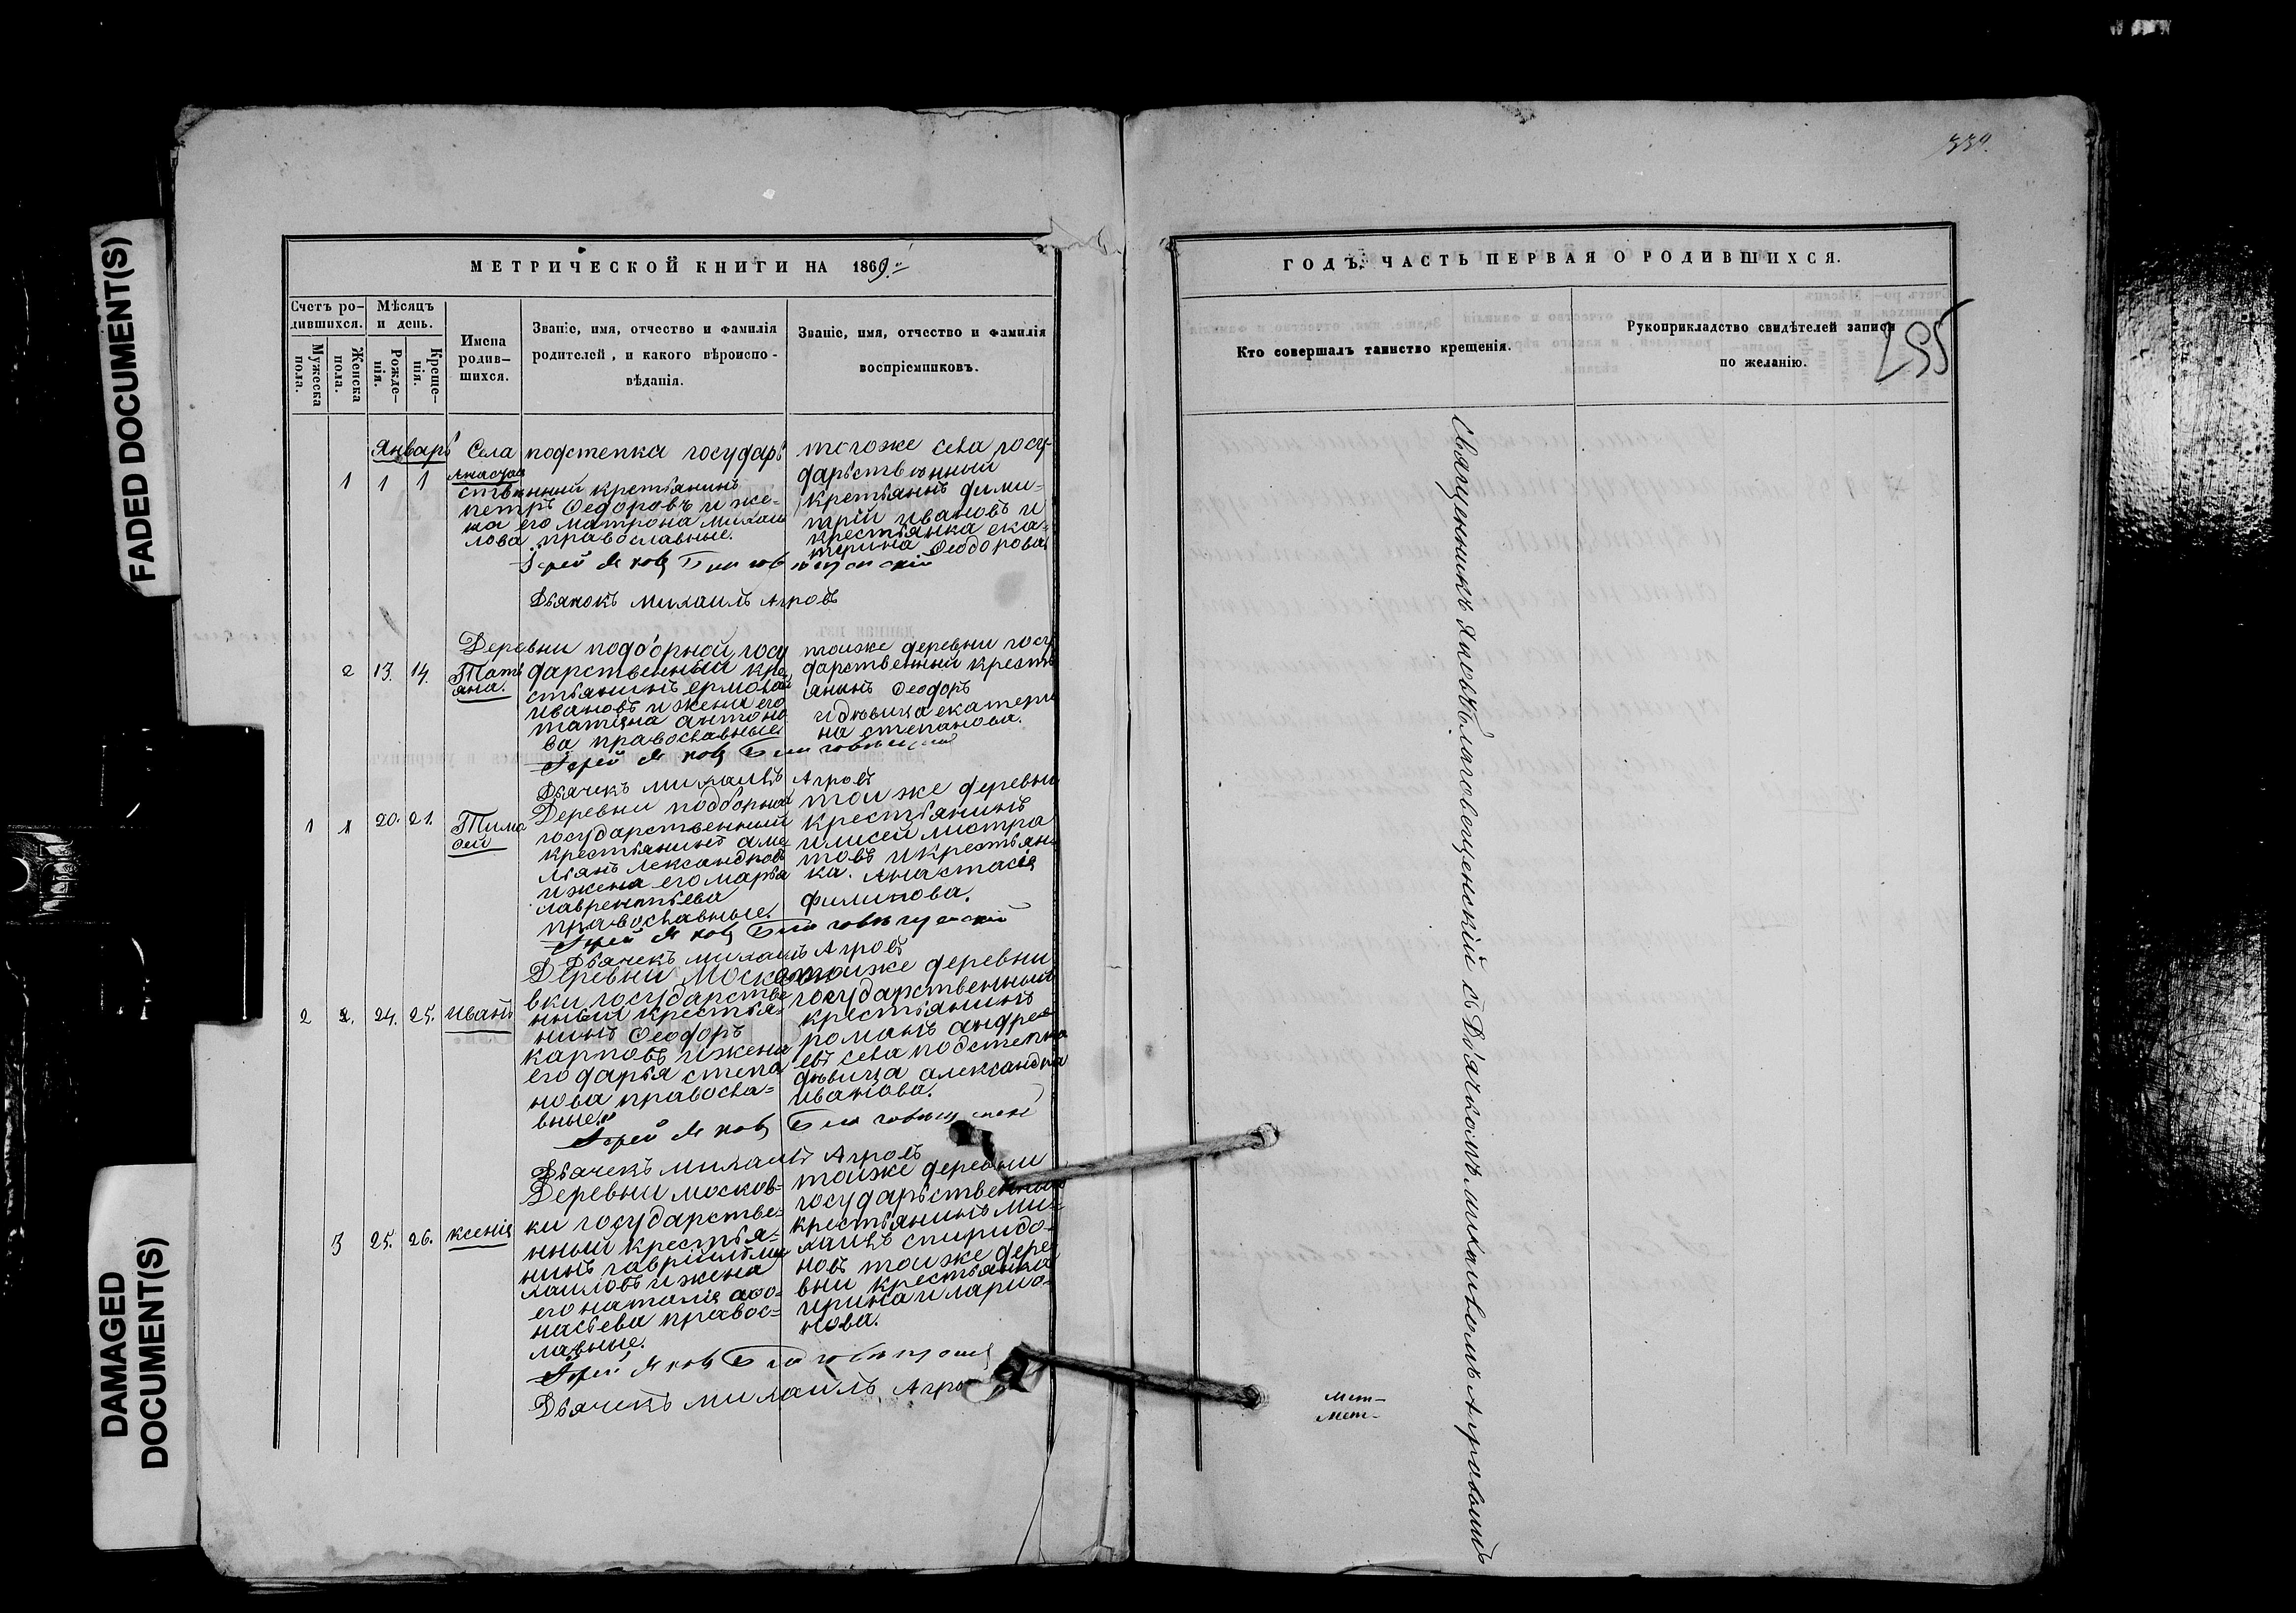 FADED DOCUMENT(S)
DAMAGED
DOCUMENT(S)
МЕТРИЧЕСКОЙ КНИГИ НА 1869.
Счетъ ро-
дившихся.
Мѣсяцъ
и день.
Мужеска
пола.
Женска
пола.
Рожде-
нія.
Креще-
нія.
Имена
родив-
шихся.
Званіе, имя, отчество и фамилія
родителей, и какого вѣроиспо-
вѣданія.
Званіе, имя, отчество и фамилія
воспріемниковъ.
Январь
1 1 1
Села подстепка государь
ственный крестьянинъ
петръ Ѳедоровъ и же-
на его матрона михаи
лова православные.
тогоже села госу-
дарьственный
крестьянинъ дими-
трій ивановъ и
крестьянка ека-
терина Ѳеодорова
Іерей Яковъ
Дьячокъ михаилъ Агровъ
2 13. 14.
Тать
яна.
Деревни подборной госу
дарственный кре
стьянинъ ермолай
ивановъ и жена его
татіяна антоно
ва православные
тоиже деревни госу
дарственный кресть
янинъ Ѳеодоръ
и дѣвица екатери
на степанова.
Іерей Яковъ
Дьячекъ михаилъ Агровъ
1 20. 21.
Тимо
ѳей
Деревни подборной
государственный
крестьянинъ аме
льянъ лександровъ
и жена его марья
лаврентьева
православные.
тоиже деревни
крестьянинъ
товъ и крестьян
ка. Анастасія
филипова.
Іерей Яковъ Благовѣщенскій
Дьячекъ михаилъ Агровъ
2 24. 25. иванъ
Деревни Моско
вки государстве
нный крестья-
нинъ Ѳеодоръ
карповъ и жена
его дарья степа
нова правосла-
вные.
тоиже деревни
государственный
крестьянинъ
романъ андре
евъ села подстепка
дѣвица александра
иванова.
Іерей Яковъ
Дьячекъ михаилъ Агровъ
3 25. 26. ксенія
Деревни москов-
ки государстве-
нный крестья-
нинъ гавріилъ ми
хаиловъ и жена
его наталія афо-
насьева правос-
лавные.
тоиже деревни
государьственный
крестьянинъ ми-
хаилъ спиридо-
новъ тоиже дере
вни крестьянка
ирина иларио-
нова.
Іерей Яковъ
Дьячекъ михаилъ Агро
ГОДЪ, ЧАСТЬ ПЕРВАЯ О РОДИВШИХСЯ.
Кто совершалъ таинство крещенія.
Рукоприкладство свидѣтелей записи
по желанію.
Священникъ Яковъ Благовещенскій съ Дьячкомъ михаиломъ Агровымъ